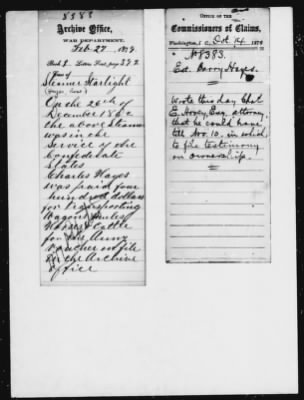 8383
Archive Office,
WAR DEPARTMENT,
Feb 27 1879
Book 2 Letter Press, page 392
Case of
Steamer Starlight
On the 26th of
December 1862
the above Steamer
was in the
Service of the
Confederate
States
Charles Hayes
was paid four
hundred dollars
for Transporting
Wagons Mules
Horses & Cattle
for the Army
Voucher on file
in the Archive
Office
OFFICE OF THE
Commissioners of Claims,
Washington, Oct 14, 187
No 8383.
Est. Hayes.
Wrote this day Chas
E. Hovey Esq. attorney,
that he could have
till Nov. 10. in which
to file testimony
on ownership.